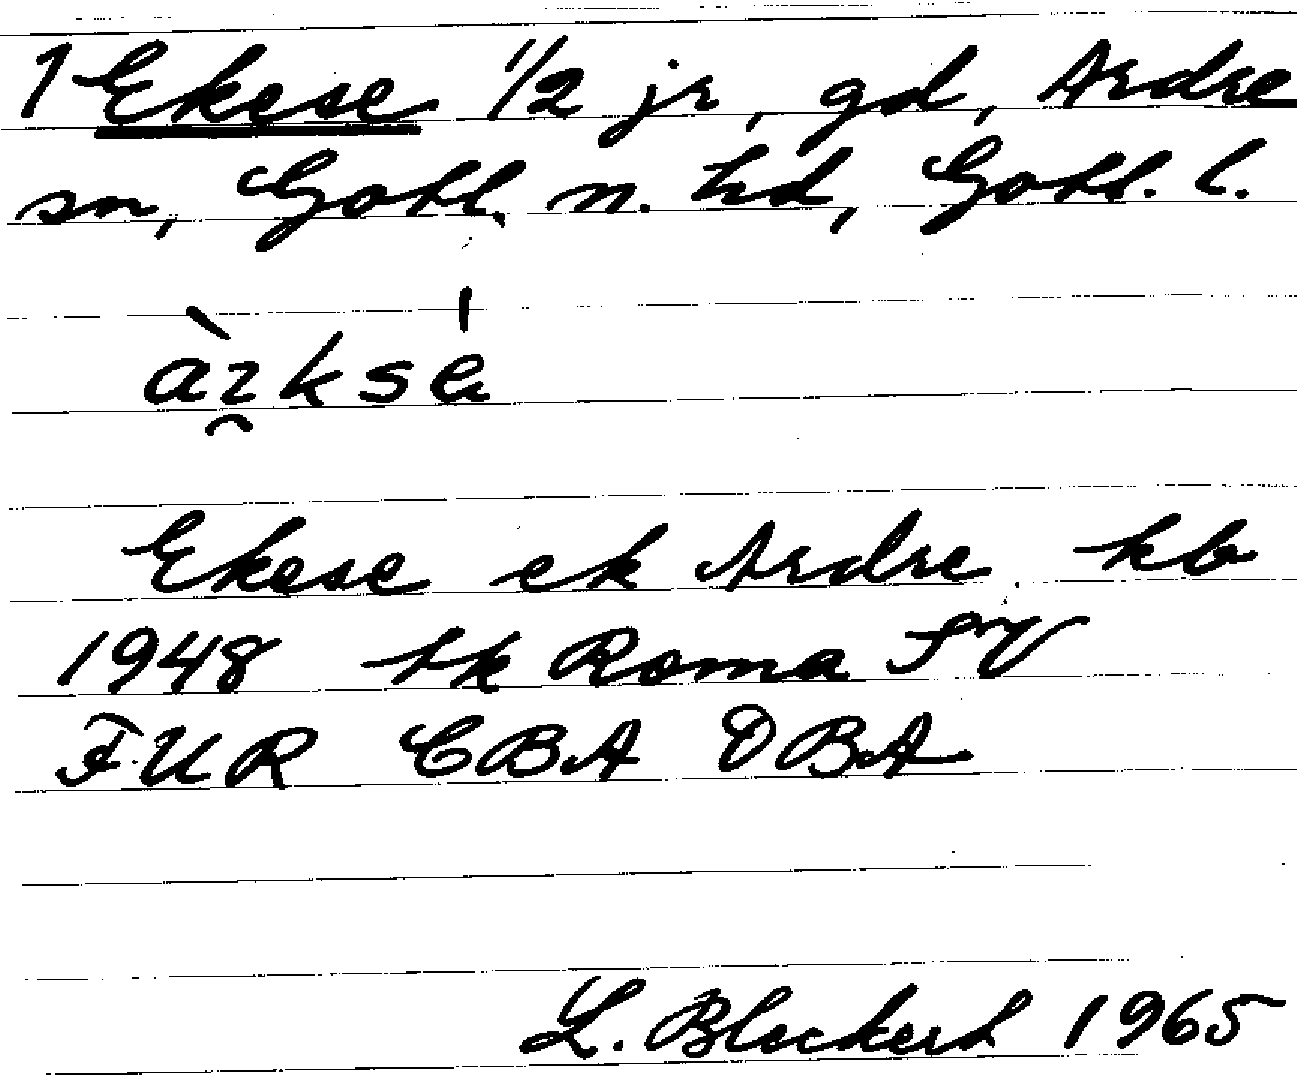 1 Ekese 1/2 jr, gd, Ardre
sn, Gotl. n. hd, Gotl. l.
Ekese ek Ardre kb
1948 tk Roma SV
FUR CBA DBA
L. Bleckert 1965